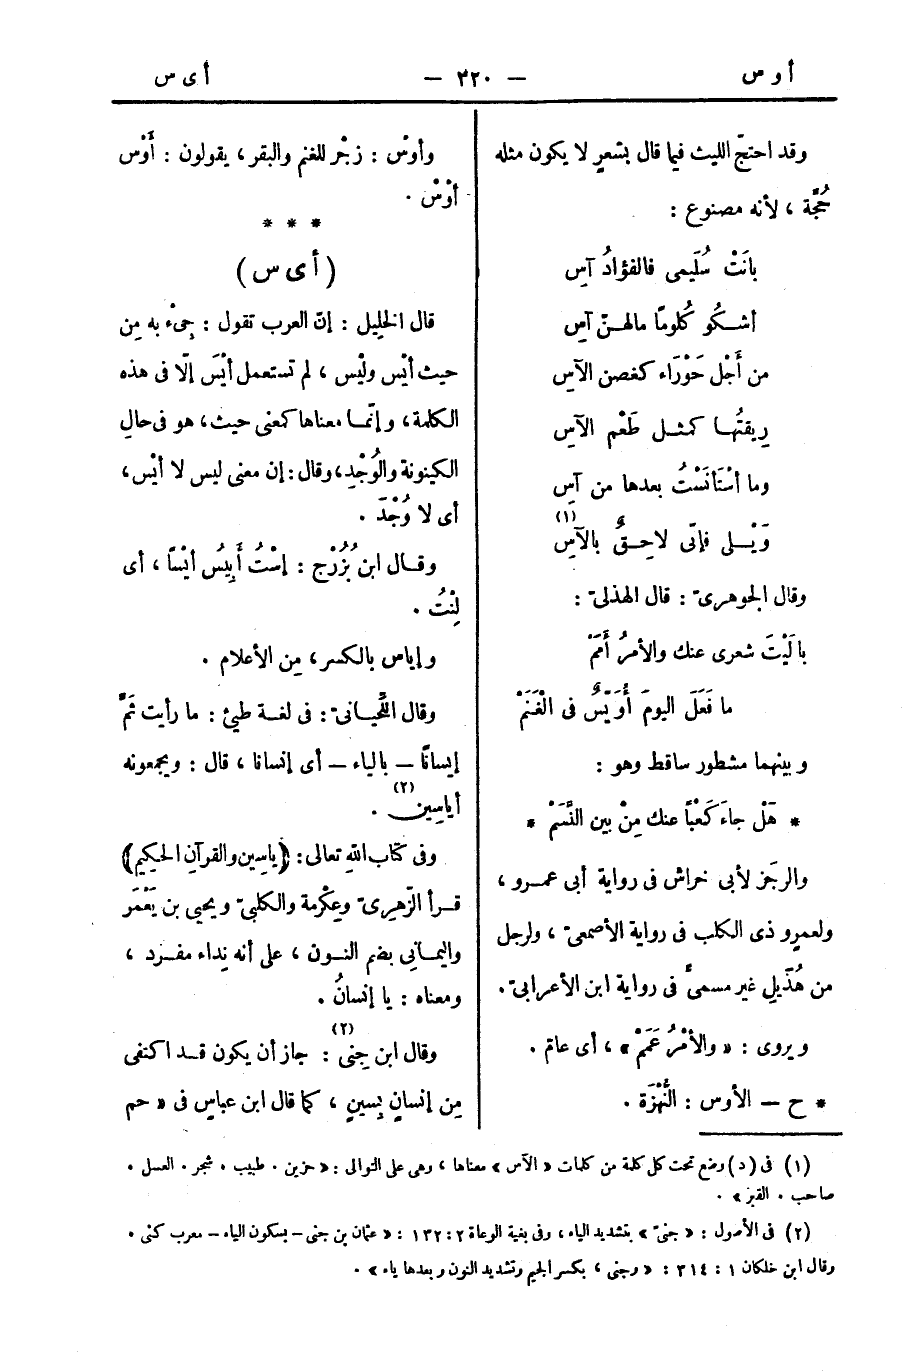 أ و س
— ٣٢٠ —
أ ى س
وقد احتجّ الليث فيما قال بشعرٍ لا يكون مثله
حُجَّة ، لأنه مصنوع :
بانَتْ سُلَيمى فالفؤادُ آسِ
أشـكُو كُلومًا مالهنّ آسِ
من أَجْل حَوْرَاء كغصن الآسِ
رِيقتُهـا كمثـل طَعْم الآسِ
وما أسْتَأنَسْتُ بعدها من آسِ
وَيْـلى فإنّى لاحِـقٌ بالآسِ (١)
وقال الجوهرىّ : قال الهذلىّ :
يا لَيْتَ شعرى عنك والأمرُ أَمَمْ
ما فَعَلَ اليومَ أُوَيْسٌ فى الْغَنَمْ
وبينهما مشطور ساقط وهو :
* هَلْ جاءَ كَعْبًا عنك مِنْ بين النَّسَمْ *
والرجَز لأبى خراش فى رواية أبى عمـرو ،
ولعمرٍو ذى الكلب فى رواية الأصمعىّ ، ولرجل
من هُذَيلٍ غير مسمىًّ فى رواية ابن الأعرابىّ .
ويروى : « والأمْرُ عَمَمْ » ، أى عامّ .
* ح — الأوس : النُّهْزَة .
وأوسْ : زجْر للغنم والبقر ، يقولون : أَوْس
أوْسْ .
* * *
( أ ى س )
قال الخليل : إنّ العرب تقول : جِىءْ به مِن
حيث أيْس وليْس ، لم تستعمل أيْسَ إلّا فى هذه
الكلمة ، وإنّمـا معناها كمعنى حيث، هو فى حالِ
الكينونة والوُجْدِ، وقال: إن معنى ليس لا أيْس ،
أى لا وُجْدَ .
وقـال ابن بُزُرْج : إسْتُ أَبِيسُ أَيْسًا ، أى
لِنْتُ .
وإياس بالكسر ، مِن الأعلام .
وقال اللِّحيانىّ : فى لغـة طيئ : ما رأيت ثَمَّ
إيسانًا — بالياء — أى إنسانا ، قال : ويجمعونه
أياسِين (٢) .
وفى كتاب الله تعالى : ﴿ ياسين والقرآنِ الحكيم ﴾
قـرأ الزّهرىّ وعِكْرمة والكلبىّ ويحيى بن يَعْمَر
واليمـانِى بضم النـون ، على أنه نداء مفـرد ،
ومعناه : يا إنسانُ .
وقال ابن جِنى (٢) : جاز أن يكون قـد اكتفى
مِن إنسانٍ بِسين ، كما قال ابن عباس فى « حم
(١) فى (د) وضع تحت كل كلمة من كلمات « الآس » معناها ، وهى على التوالى : « حزين . طبيب . شجر . العسل .
صاحب . القبر » .
(٢) فى الأصول : « جنىّ » بتشديد الياء ، وفى بغية الوعاة ٢ : ١٣٢ : « عثمان بن جنى — بسكون الياء — معرب كنى .
وقال ابن خلكان ١ : ٣١٤ : « وجنى ، بكسر الجيم وتشديد النون وبعدها ياء » .